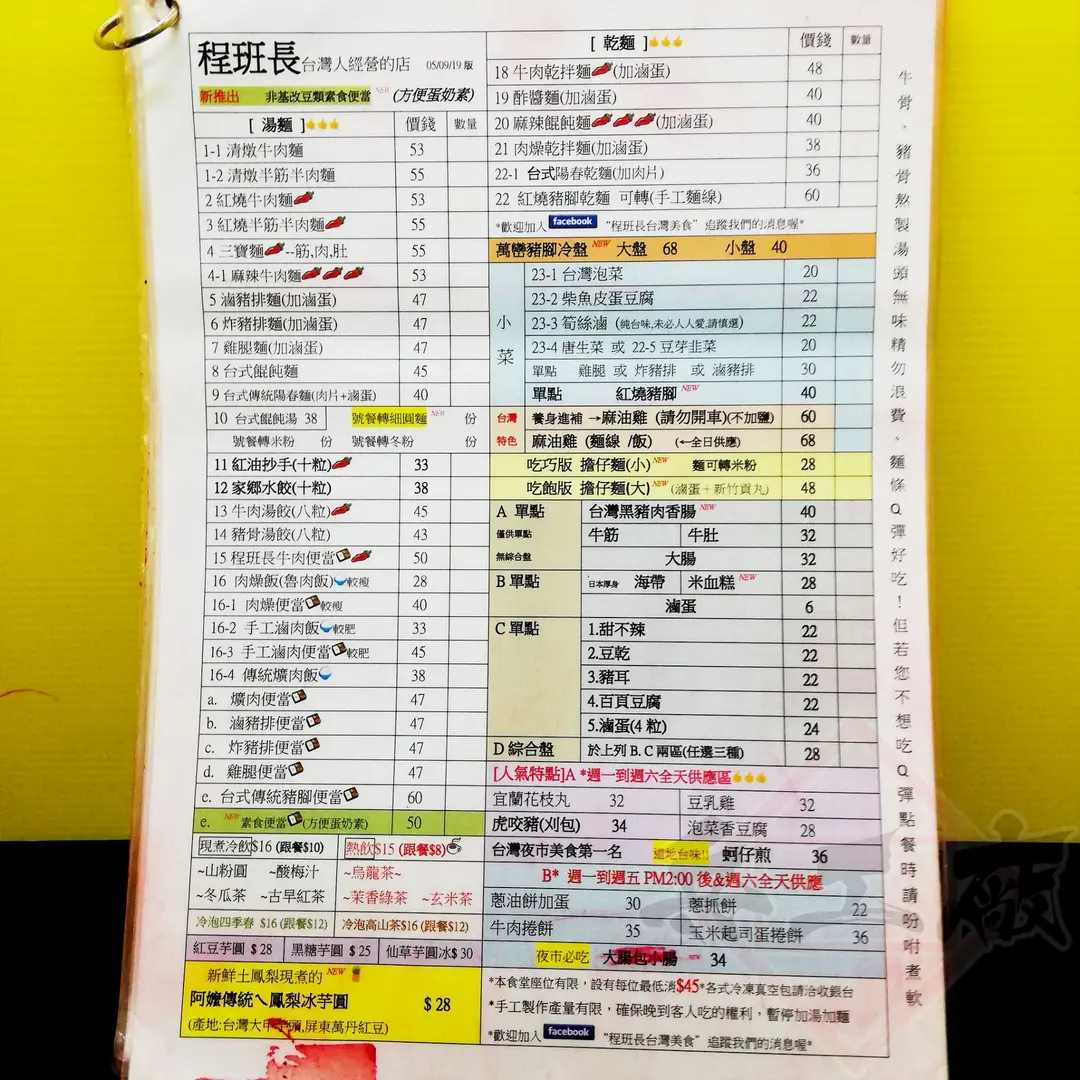 程班長 台灣人經營的店 05/09/19 版
新推出 非基改豆類素食便當 NEW (方便蛋奶素)
[ 湯麵 ] 價錢 數量
1-1 清燉牛肉麵 53
1-2 清燉半筋半肉麵 55
2 紅燒牛肉麵 53
3 紅燒半筋半肉麵 55
4 三寶麵--筋,肉,肚 55
4-1 麻辣牛肉麵 53
5 滷豬排麵(加滷蛋) 47
6 炸豬排麵(加滷蛋) 47
7 雞腿麵(加滷蛋) 47
8 台式餛飩麵 45
9 台式傳統陽春麵(肉片+滷蛋) 40
10 台式餛飩湯 38 號餐轉細圓麵 NEW 份
號餐轉米粉 份 號餐轉冬粉 份
11 紅油抄手(十粒) 33
12 家鄉水餃(十粒) 38
13 牛肉湯餃(八粒) 45
14 豬骨湯餃(八粒) 43
15 程班長牛肉便當 50
16 肉燥飯(魯肉飯) 較瘦 28
16-1 肉燥便當 較瘦 40
16-2 手工滷肉飯 較肥 33
16-3 手工滷肉便當 較肥 45
16-4 傳統爌肉飯 38
a. 爌肉便當 47
b. 滷豬排便當 47
c. 炸豬排便當 47
d. 雞腿便當 47
e. 台式傳統豬腳便當 60
e. NEW 素食便當 (方便蛋奶素) 50
現煮冷飲$16 (跟餐$10) 熱飲$15 (跟餐$8)
~山粉圓 ~酸梅汁 ~烏龍茶~
~冬瓜茶 ~古早紅茶 ~茉香綠茶 ~玄米茶
冷泡四季春 $16 (跟餐$12) 冷泡高山茶$16 (跟餐$12)
紅豆芋圓 $ 28 黑糖芋圓 $ 25 仙草芋圓冰$ 30
新鮮土鳳梨現煮的 NEW
阿嬤傳統ㄟ鳳梨冰芋圓 $ 28
(產地:台灣大甲芋頭,屏東萬丹紅豆)
[ 乾麵 ] 價錢 數量
18 牛肉乾拌麵(加滷蛋) 48
19 酢醬麵(加滷蛋) 40
20 麻辣餛飩麵(加滷蛋) 40
21 肉燥乾拌麵(加滷蛋) 38
22-1 台式陽春乾麵(加肉片) 36
22 紅燒豬腳乾麵 可轉(手工麵線) 60
*歡迎加入 facebook “程班長台灣美食” 追蹤我們的消息喔*
萬巒豬腳冷盤 NEW 大盤 68 小盤 40
小菜
23-1 台灣泡菜 20
23-2 柴魚皮蛋豆腐 22
23-3 筍絲滷 (純台味,未必人人愛,請慎選) 22
23-4 唐生菜 或 22-5 豆芽韭菜 20
單點 雞腿 或 炸豬排 或 滷豬排 30
單點 紅燒豬腳 NEW 40
台灣 養身進補 →麻油雞 (請勿開車)(不加鹽) 60
特色 麻油雞 (麵線 /飯) (←全日供應) 68
吃巧版 擔仔麵(小) NEW 麵可轉米粉 28
吃飽版 擔仔麵(大) NEW (滷蛋+新竹貢丸) 48
A 單點 台灣黑豬肉香腸 NEW 40
僅供單點 牛筋 牛肚 32
無綜合盤 大腸 32
B 單點 日本厚身 海帶 米血糕 NEW 28
滷蛋 6
C 單點 1.甜不辣 22
2.豆乾 22
3.豬耳 22
4.百頁豆腐 22
5.滷蛋(4 粒) 24
D 綜合盤 於上列 B. C 兩區(任選三種) 28
[人氣特點]A *週一到週六全天供應區
宜蘭花枝丸 32 豆乳雞 32
虎咬豬(刈包) 34 泡菜香豆腐 28
台灣夜市美食第一名 道地台味!! 蚵仔煎 36
B* 週一到週五 PM2:00 後&週六全天供應
蔥油餅加蛋 30 蔥抓餅 22
牛肉捲餅 35 玉米起司蛋捲餅 36
夜市必吃 大腸包小腸 NEW 34
*本食堂座位有限，設有每位最低消$45*各式冷凍真空包請洽收銀台
*手工製作產量有限，確保晚到客人吃的權利，暫停加湯加麵
*歡迎加入 facebook “程班長台灣美食” 追蹤我們的消息喔*
牛骨。豬骨熬製湯頭無味精勿浪費。麵條Q彈好吃！但若您不想吃Q彈點餐時請吩咐煮軟